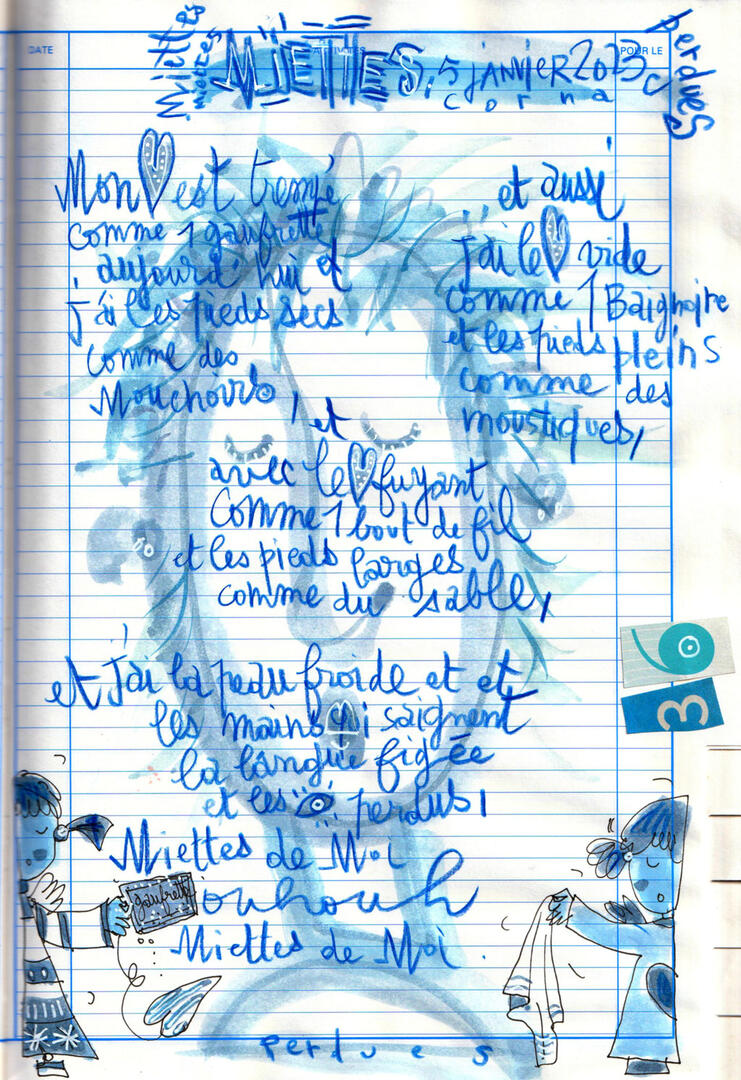 DATE
POUR LE
Miettes
miettes
MIETTES, 5 JANVIER 2023
corna
perdues
Mon est trempé
comme 1 gaufrette
aujourd'hui et
j'ai les pieds secs
comme des
Mouchoirs,
et aussi
j'ai le vide
comme 1 Baignoire
et les pieds pleins
comme des
moustiques,
et
avec le fuyant
comme 1 bout de fil
et les pieds larges
comme du sable,
et j'ai la peau froide et et
les mains qi saignent
la langue figée
et les perdus,
Miettes de Moi
ouhouh
Miettes de Moi.
perdues
gaufrette
6
3